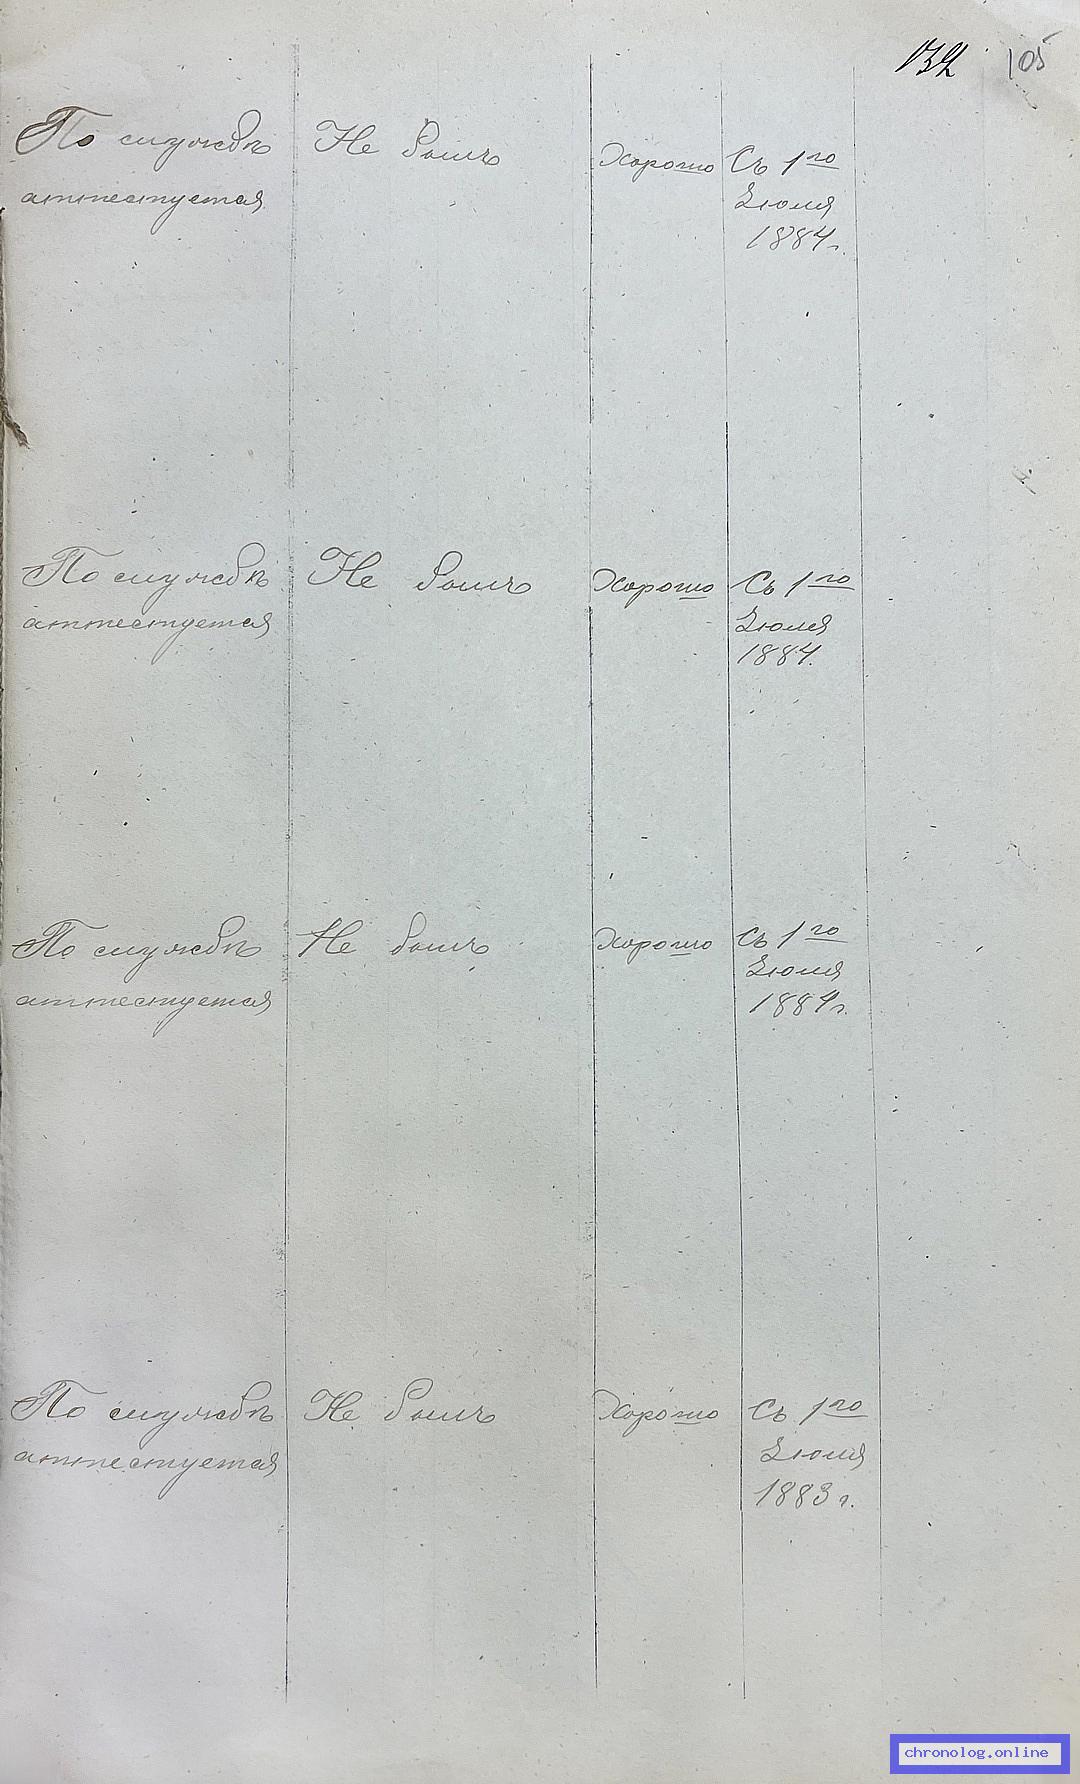 132 105
По службѣ Не былъ Хорошо Съ 1го
аттестуется Іюля
1884 г.
По службѣ Не былъ Хорошо Съ 1го
аттестуется Іюля
1884.
По службѣ Не былъ Хорошо Съ 1го
аттестуется Іюля
1884 г.
По службѣ Не былъ Хорошо Съ 1го
аттестуется Іюля
1883 г.
chronolog.online